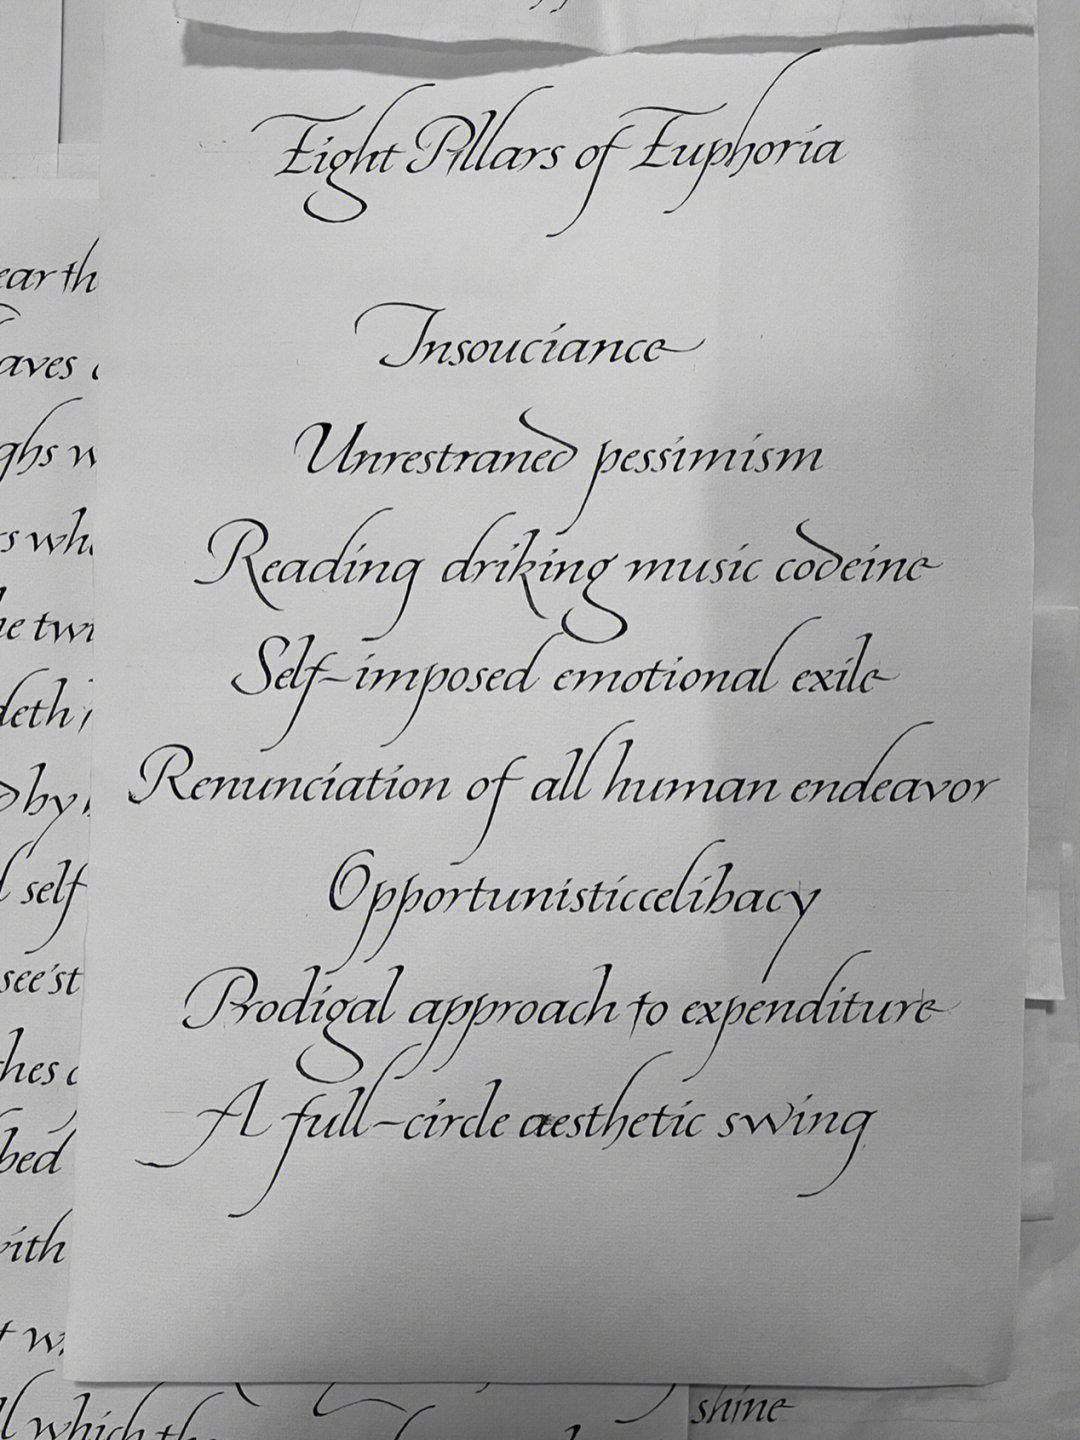 Eight Pillars of Euphoria
Insouciance
Unrestraned pessimism
Reading driking music codeine
Self-imposed emotional exile
Renunciation of all human endeavor
Opportunisticcelibacy
Prodigal approach to expenditure
A full-circle aesthetic swing
ear th
aves
ghs w
s wh
he tw
deth
by
self
see'st
hes
bed
with
t w
which the
shine